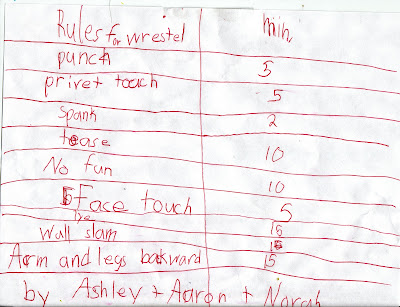 Rules for wrestel min
punch 5
privet toach 5
spank 2
tease 10
No fun 10
Face touch 5
Wall slam 15
15
Aorm and legs bakward 15
by Ashley + Aaron + Norah